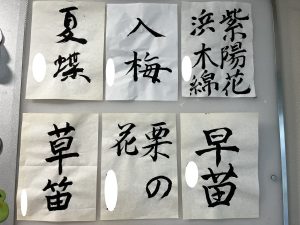 夏蝶
入梅
紫陽花
浜木綿
草笛
栗の
花
早苗